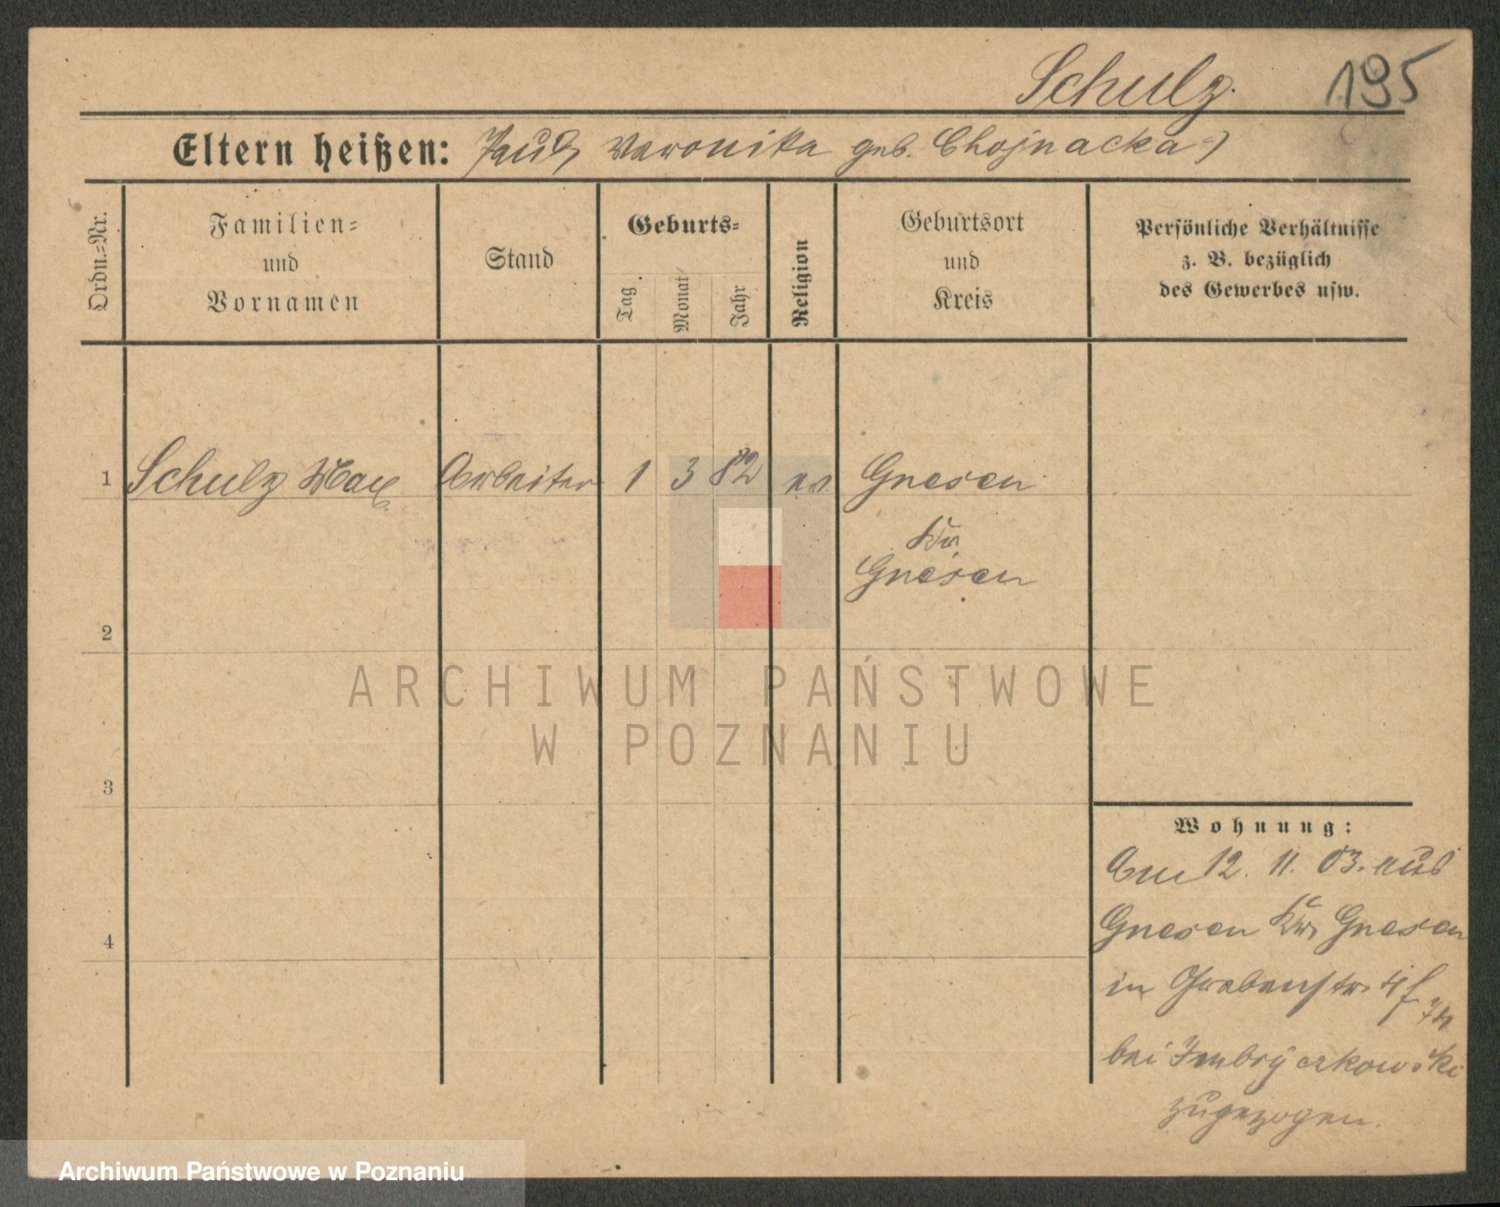 Schulz. 195
Eltern heißen: Paul, Veronika geb. Chojnacka
Ordn.=Nr.
Familien=
und
Vornamen
Stand
Geburts=
Tag
Monat
Jahr
Religion
Geburtsort
und
Kreis
Persönliche Verhältnisse
z. B. bezüglich
des Gewerbes usw.
1 Schulz Max Arbeiter 1 3 82 ev. Gnesen
Kr.
Gnesen
2
ARCHIWUM PAŃSTWOWE
W POZNANIU
3
Wohnung:
Am 12. 11. 03. aus
4
Gnesen Kr. Gnesen
in Grabenstr. 4
bei
zugezogen.
Archiwum Państwowe w Poznaniu